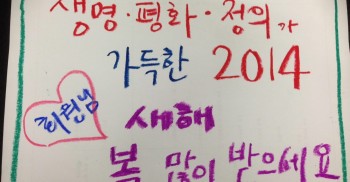 생명·평화·정의가
가득한 2014
회원님
새해
복 많이 받으세요